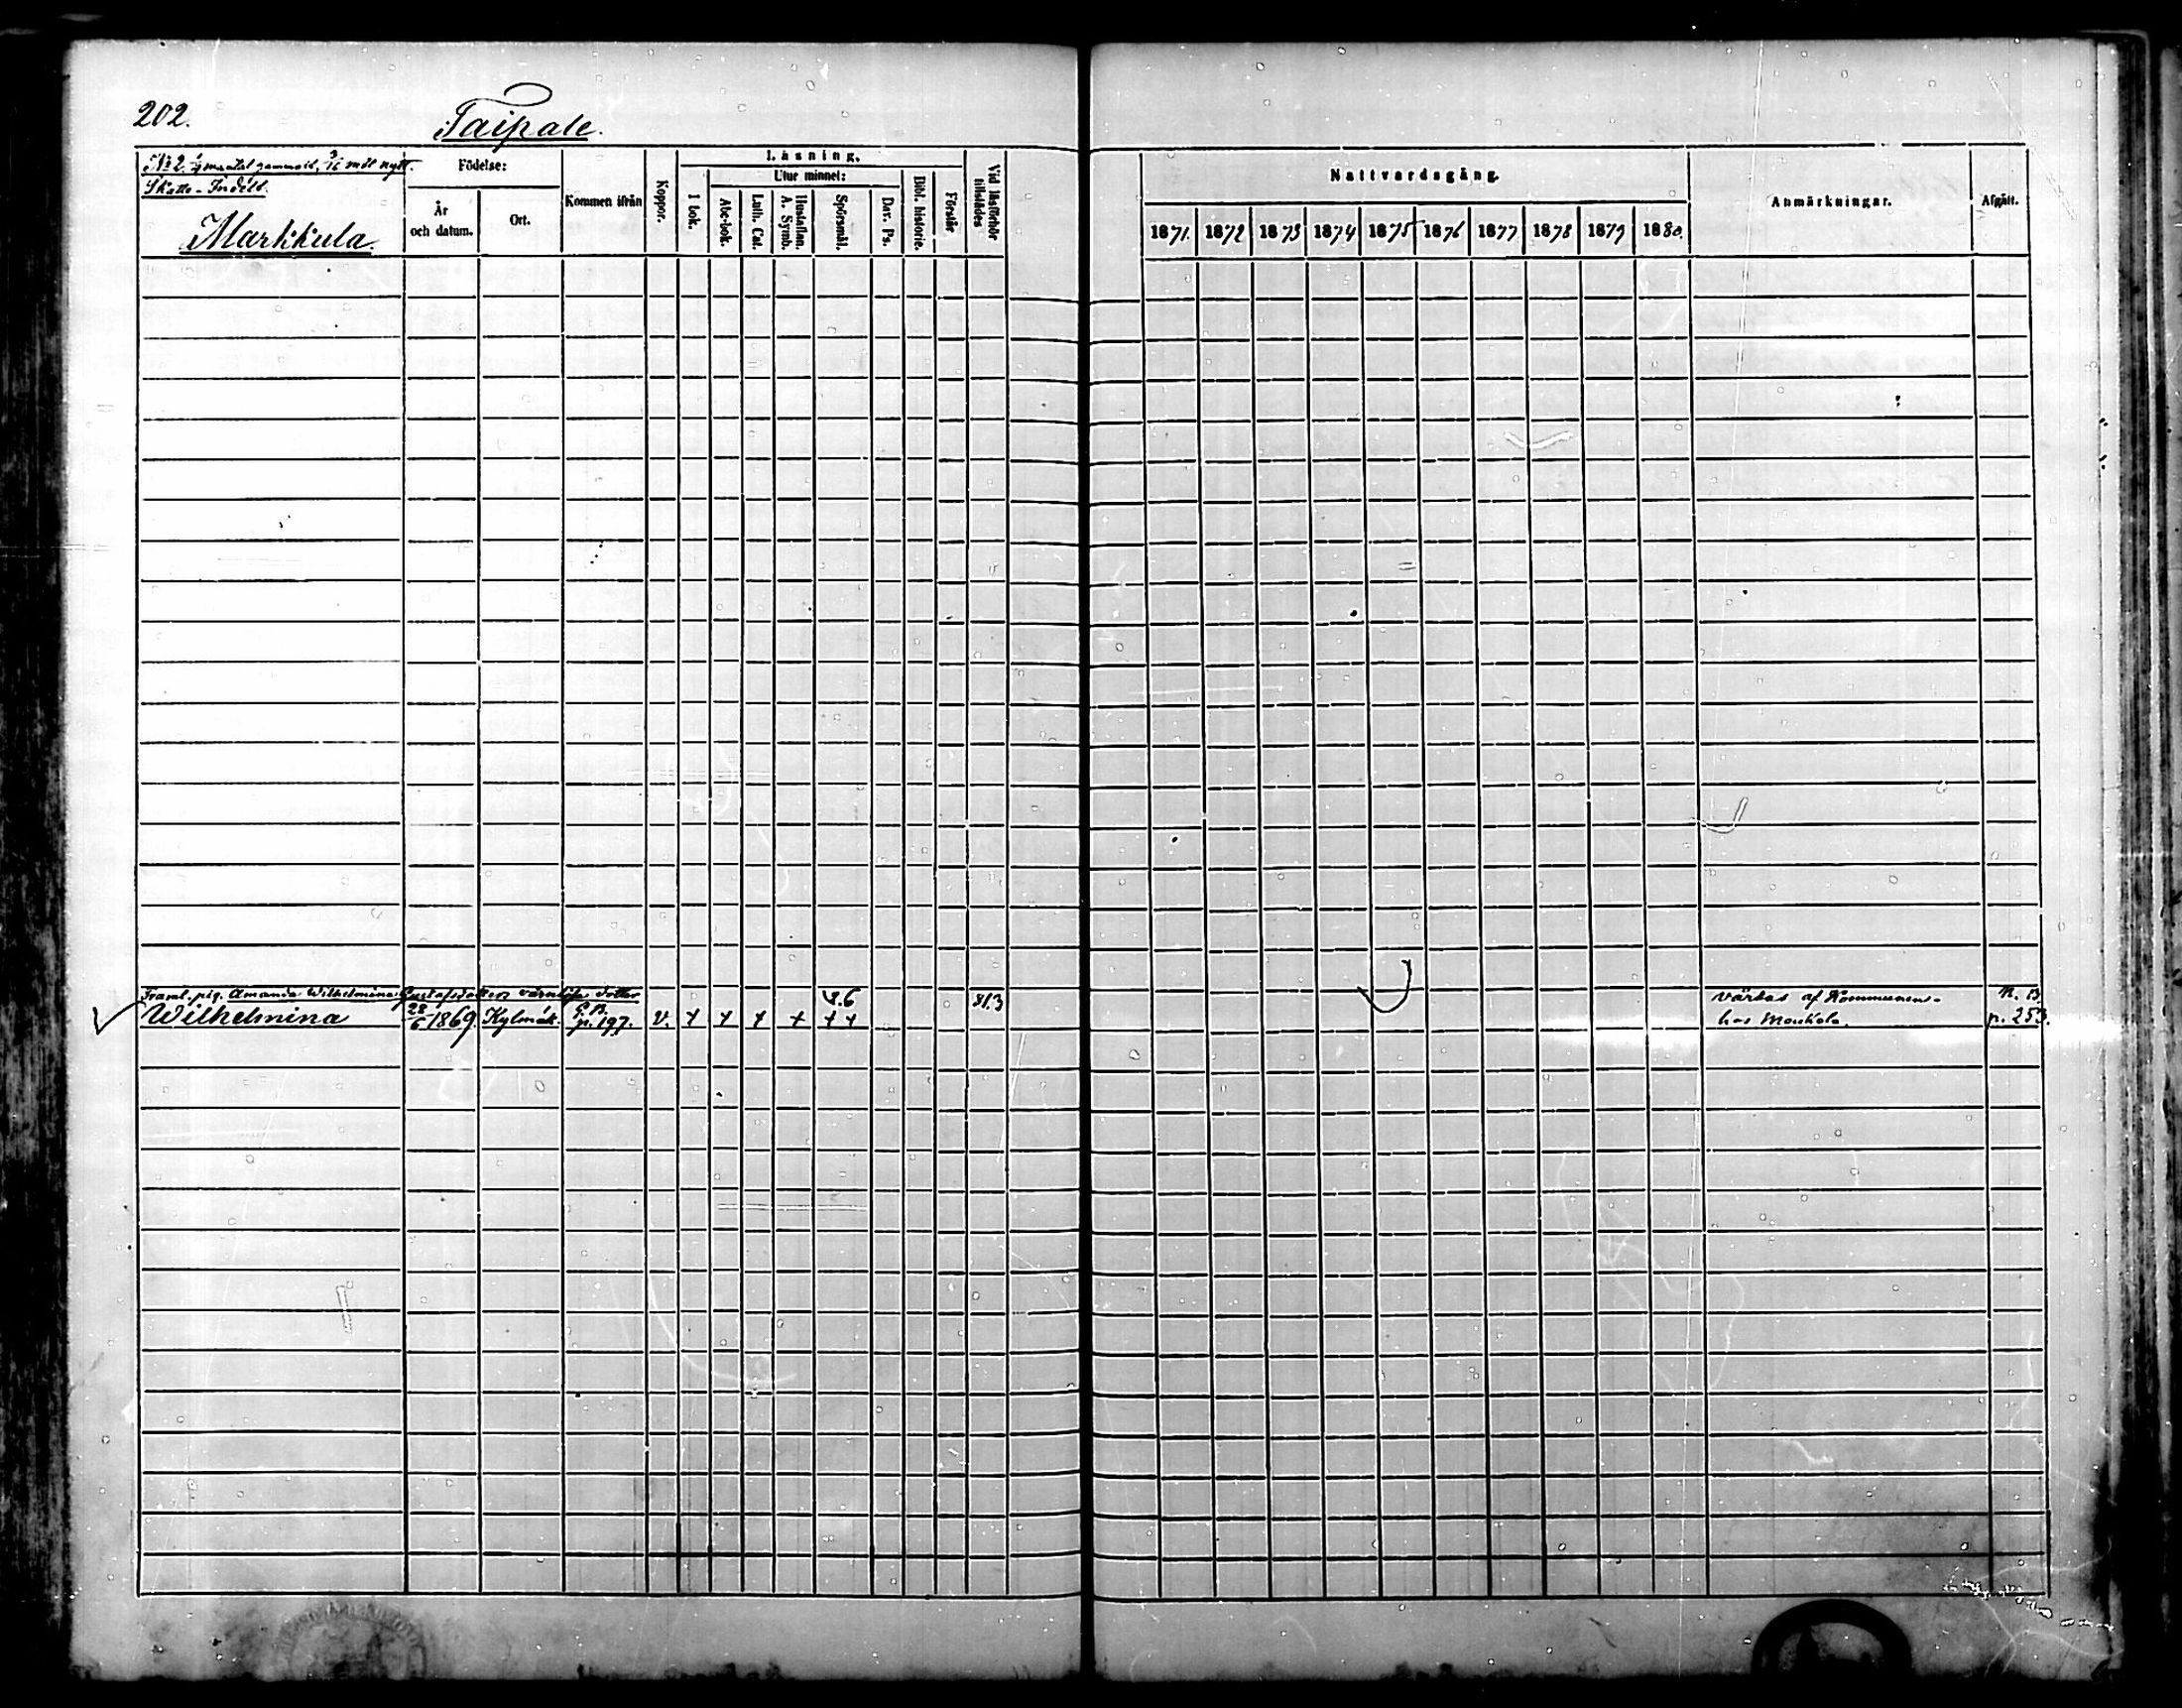 202.
Taipale.
No 2. 1/4 mantal gammalt, 3/16 mtl nytt.
Skatte-Indelt.
Markkula.
Födelse:
År och datum.
Ort.
Kommen ifrån
Koppor.
Läsning.
I bok.
Utur minnet:
Abc-bok.
Luth. Cat.
Hustaflan. A. Symb.
Spörsmål.
Dav. Ps.
Bibl. historie.
Förstår
Vid läsförhör tillstädes
Nattvardsgång.
1871. 1872 1873 1874 1875 1876 1877 1878 1879 1880.
Anmärkningar.
Afgått.
Framl. pig. Amanda Wilhelmina Gustafsdotters värnlösa dotter 8.6 81.3 vårdas af Kommunen N. B.
Wilhelmina 28/6 1869. Kylmäk. G.B. p. 197. v. + + + + + + hos Moukola. p. 253.